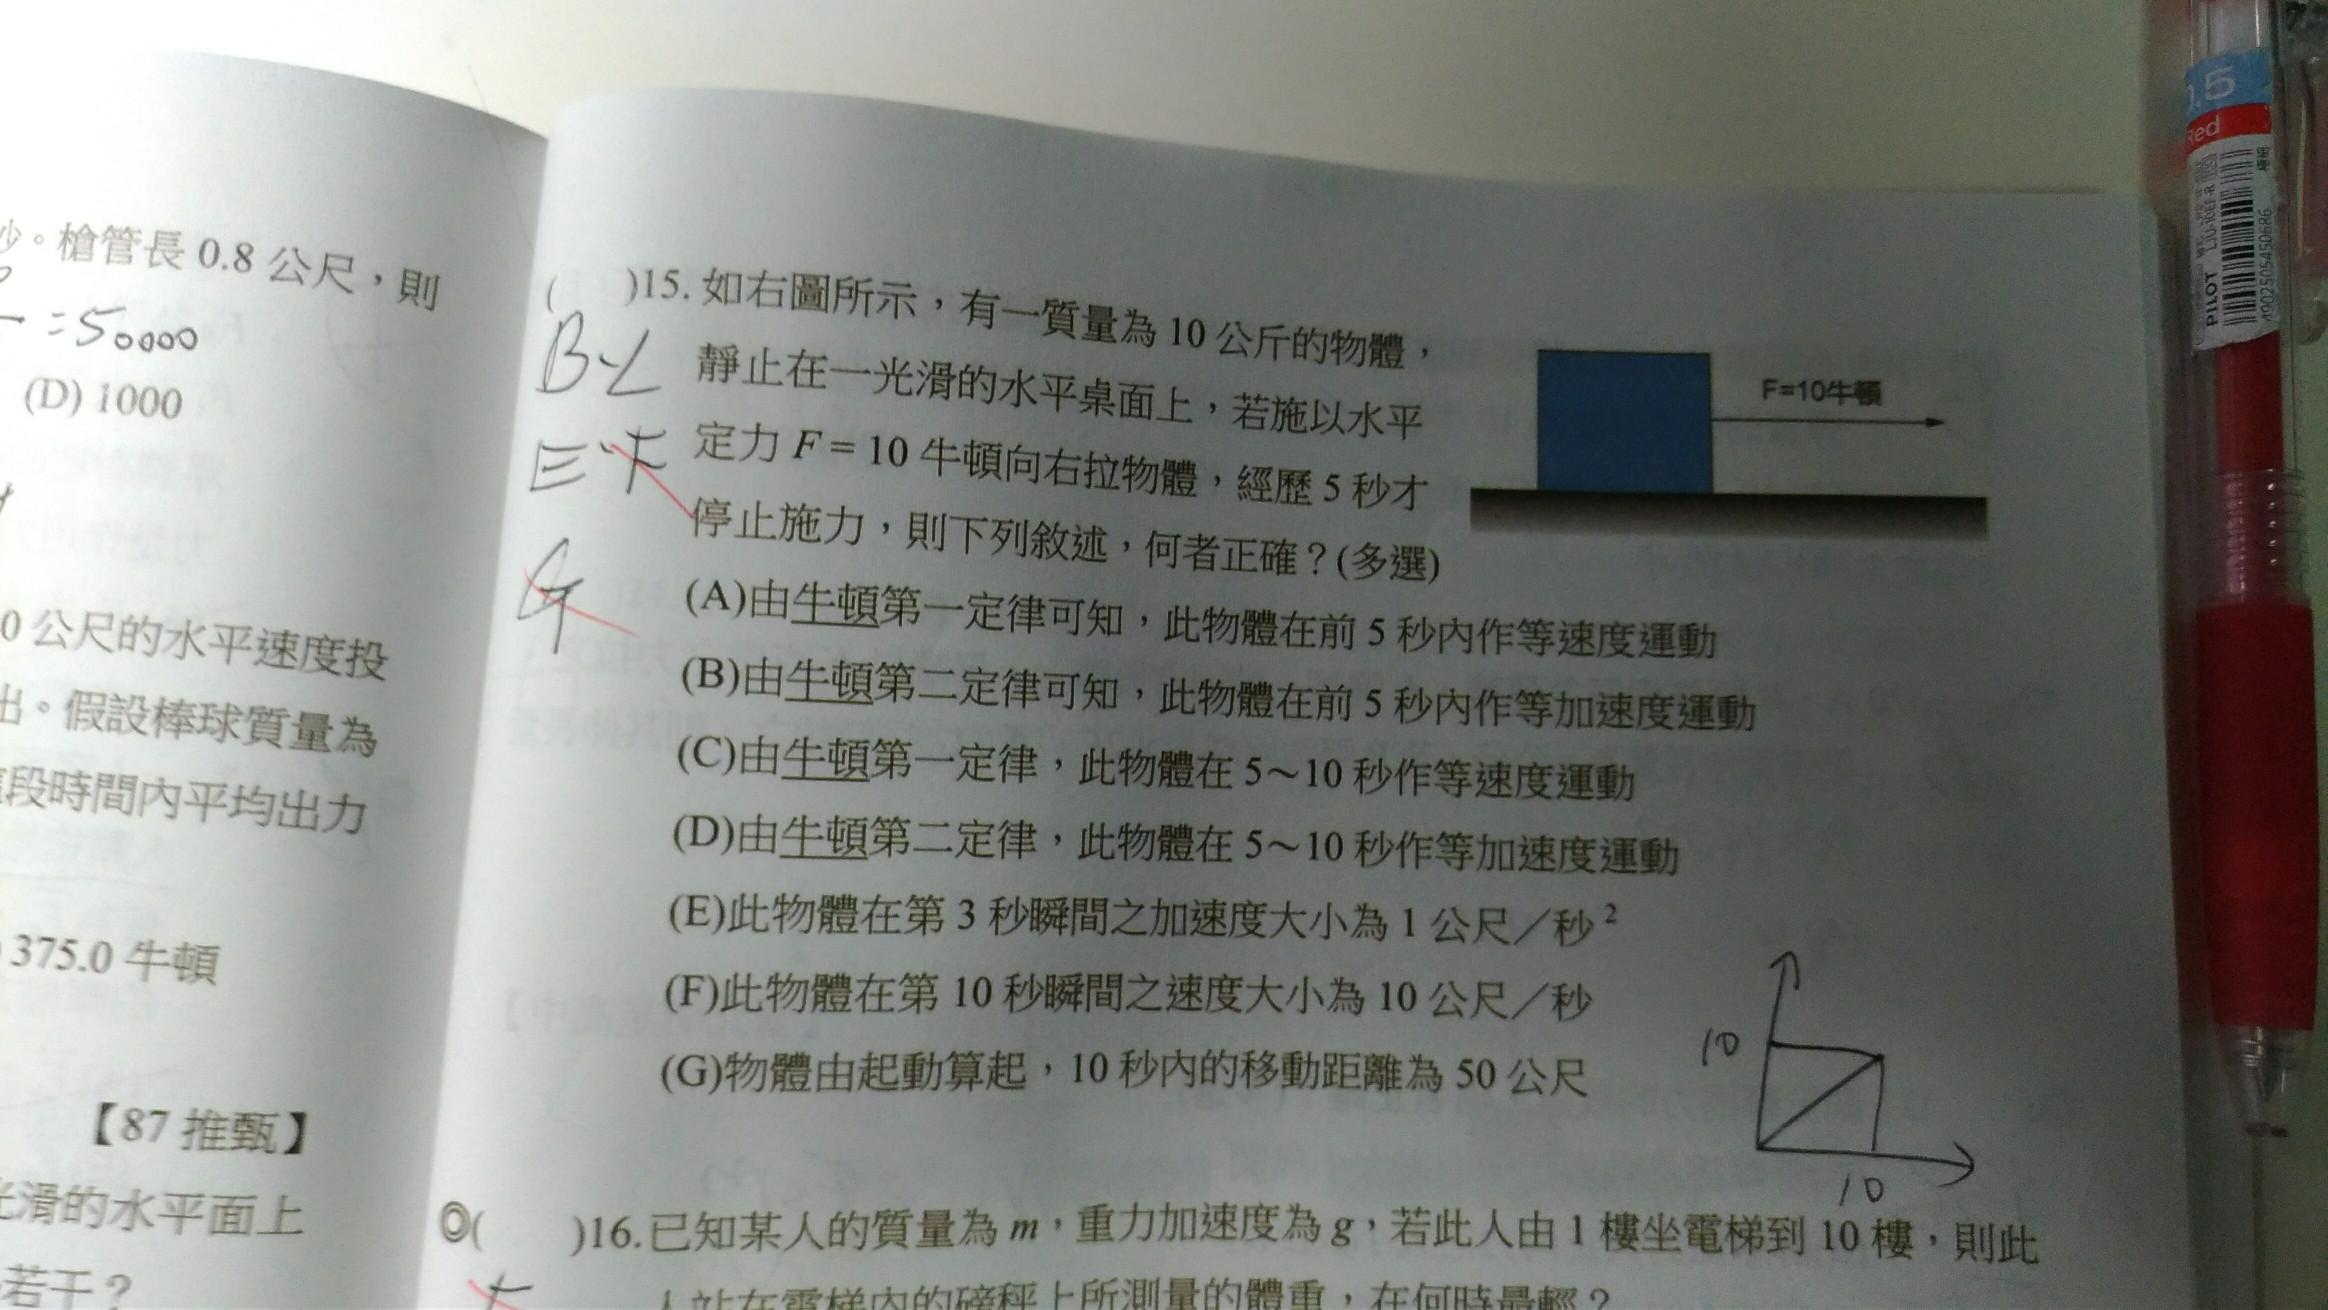 秒。槍管長 0.8 公尺，則
=50000
(D) 1000
0 公尺的水平速度投
出。假設棒球質量為
段時間內平均出力
375.0 牛頓
【87 推甄】
光滑的水平面上
若干？
(　)15. 如右圖所示，有一質量為 10 公斤的物體，
靜止在一光滑的水平桌面上，若施以水平
定力 F = 10 牛頓向右拉物體，經歷 5 秒才
停止施力，則下列敘述，何者正確？(多選)
B、C
E、F
G
F=10牛頓
(A)由牛頓第一定律可知，此物體在前 5 秒內作等速度運動
(B)由牛頓第二定律可知，此物體在前 5 秒內作等加速度運動
(C)由牛頓第一定律，此物體在 5～10 秒作等速度運動
(D)由牛頓第二定律，此物體在 5～10 秒作等加速度運動
(E)此物體在第 3 秒瞬間之加速度大小為 1 公尺／秒²
(F)此物體在第 10 秒瞬間之速度大小為 10 公尺／秒
(G)物體由起動算起，10 秒內的移動距離為 50 公尺
10
10
◎(　)16.已知某人的質量為 m，重力加速度為 g，若此人由 1 樓坐電梯到 10 樓，則此
人站在電梯內的磅秤上所測量的體重，在何時最輕？
.5
Red
PILOT LJU-10EF-R
4902505450686